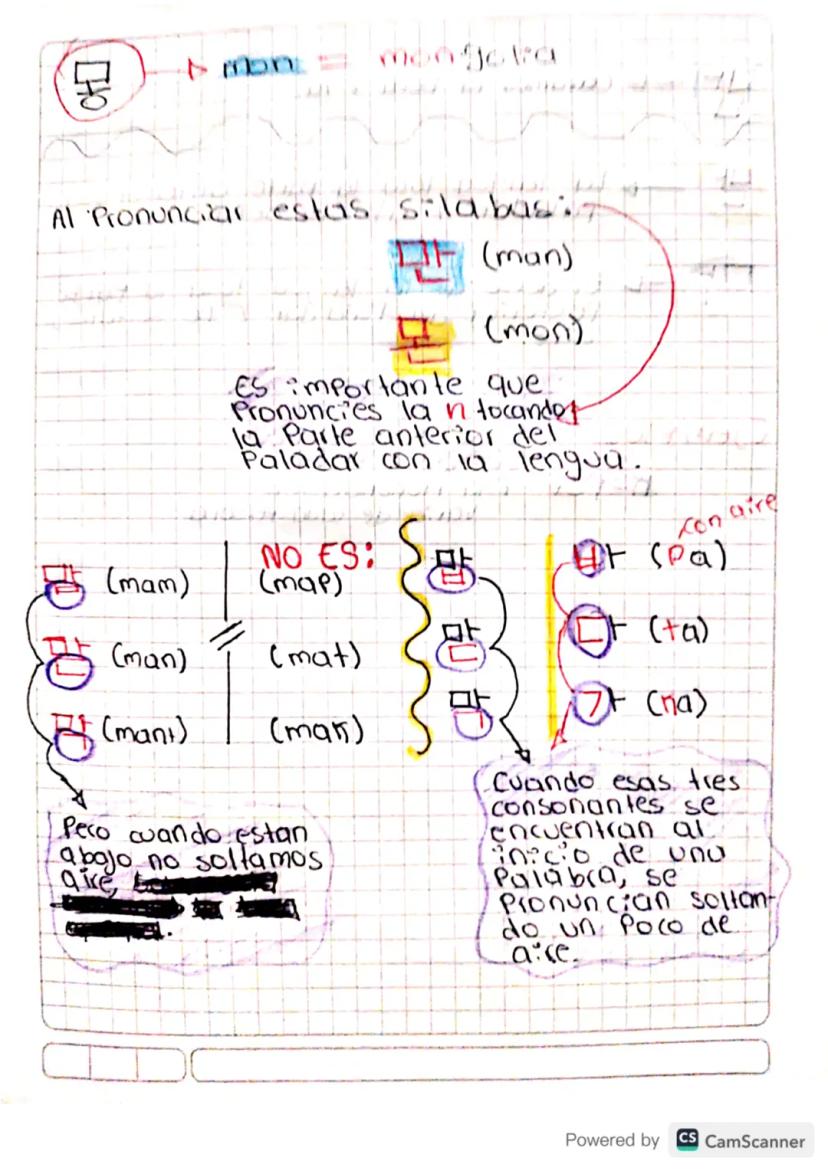 몽 → mon = mongolia
Al Pronunciar estas silabas:
만 (man)
몬 (mon)
Es importante que
Pronuncies la n tocando
la Parte anterior del
Paladar con la lengua.
NO ES:
con aire
맙 (mam) (map) 맙 바 (pa)
맏 (man) (mat) 맏 다 (ta)
막 (mak) 막 가 (ka)
Pero cuando estan
abajo no soltamos
aire,
Cuando esas tres
consonantes se
encuentran al
inicio de una
Palabra, se
Pronuncian soltan-
do un Poco de
aire.
Powered by CS CamScanner